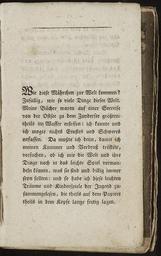 Wie diese Mährchen zur Welt kommen?
Zufällig, wie so viele Dinge dieser Welt.
Meine Bücher waren auf einer Seereise
von der Ostsee zu dem Zundersee größten-
theils im Wasser ersoffen: ich konnte und
ich mogte nichts Ernstes und Schweres
anfassen. Da mußte ich denn, damit ich
meinen Kummer und Verdruß tröstete,
versuchen, ob ich mir die Welt und ihre
Dinge noch in das leichte Spiel verwan-
deln könnte, was sie sind und selten immer
seyn sollen: und so hab ich diese leichten
Träume und Kinderspiele der Jugend zu-
sammengelesen, die theils auf dem Papiere
theils in dem Kopfe lange fertig lagen.